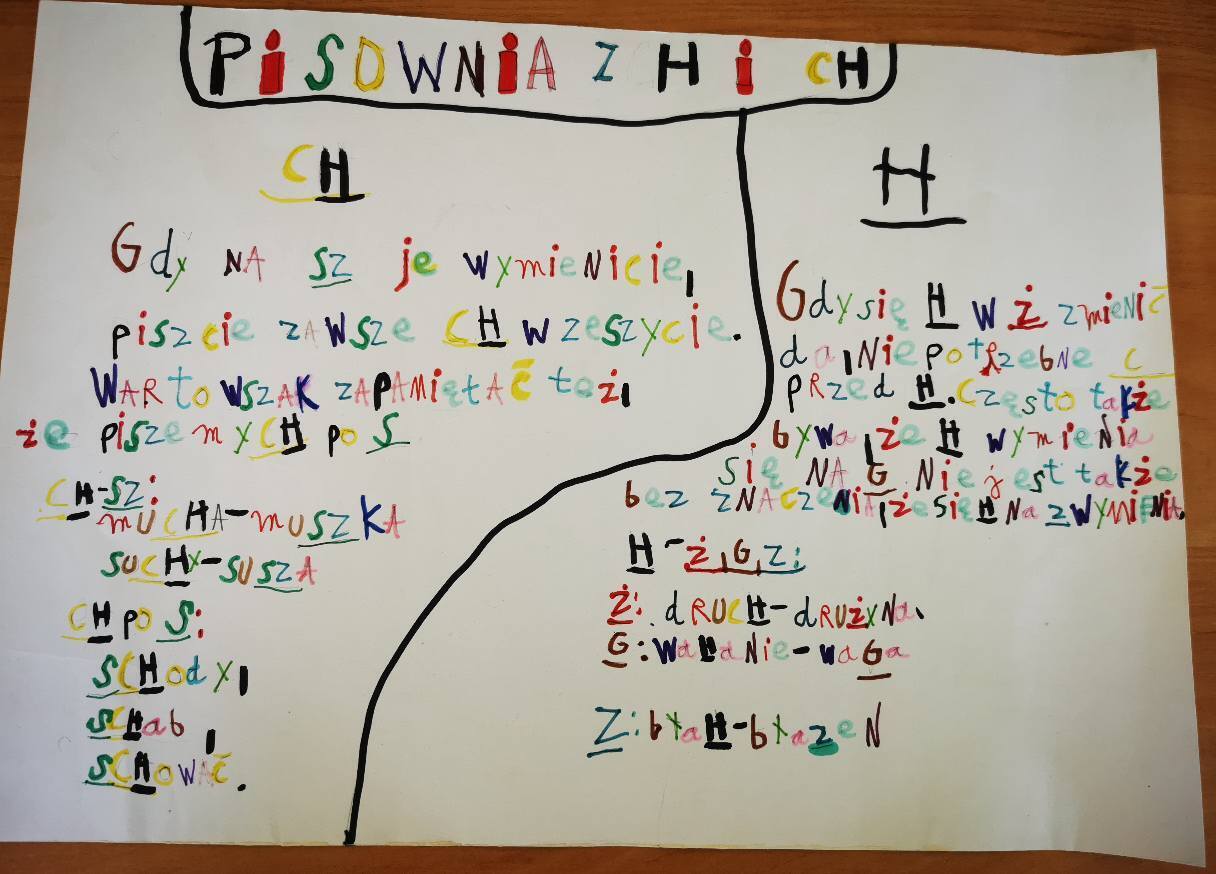 PiSOWNiA Z H i CH
CH
Gdy NA SZ je wymieNicie,
piszcie zAwsze CH w zeszycie.
WARto wszAK zAPAMiętAć też,
że piszemy CH po S
CH-SZ:
muCHA-muSZKA
SUCHy-SUSZA
CH po S:
SCHody,
SCHab,
SCHOWAć.
H
Gdy się H w Ż zmieNić
da, Nie potRzebNe C
pRzed H. Często także
bywa, że H wymieNia
się NA G Nie jest także
bez zNAczeNiA, że się H Na z wymieNiA.
H-Ż,G,Z:
Ż: dRUCH-dRUżyNa.
G: WaHaNie-waGa
Z: błaH-błazeN